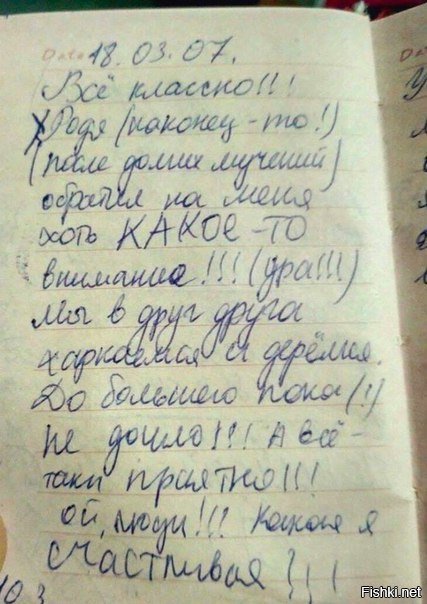 18.03.07.
Всё классно!!!
Родя (наконец-то!)
(после долгих мучений)
обратил на меня
хоть КАКОЕ-ТО
внимание!!! (ура!!!)
Мы в друг друга
харкаемся и дерёмся.
До большего пока (!)
не дошло!!! А всё-
таки приятно!!!
Ой, люди!!! Какая я
счастливая!!!
Fishki.net